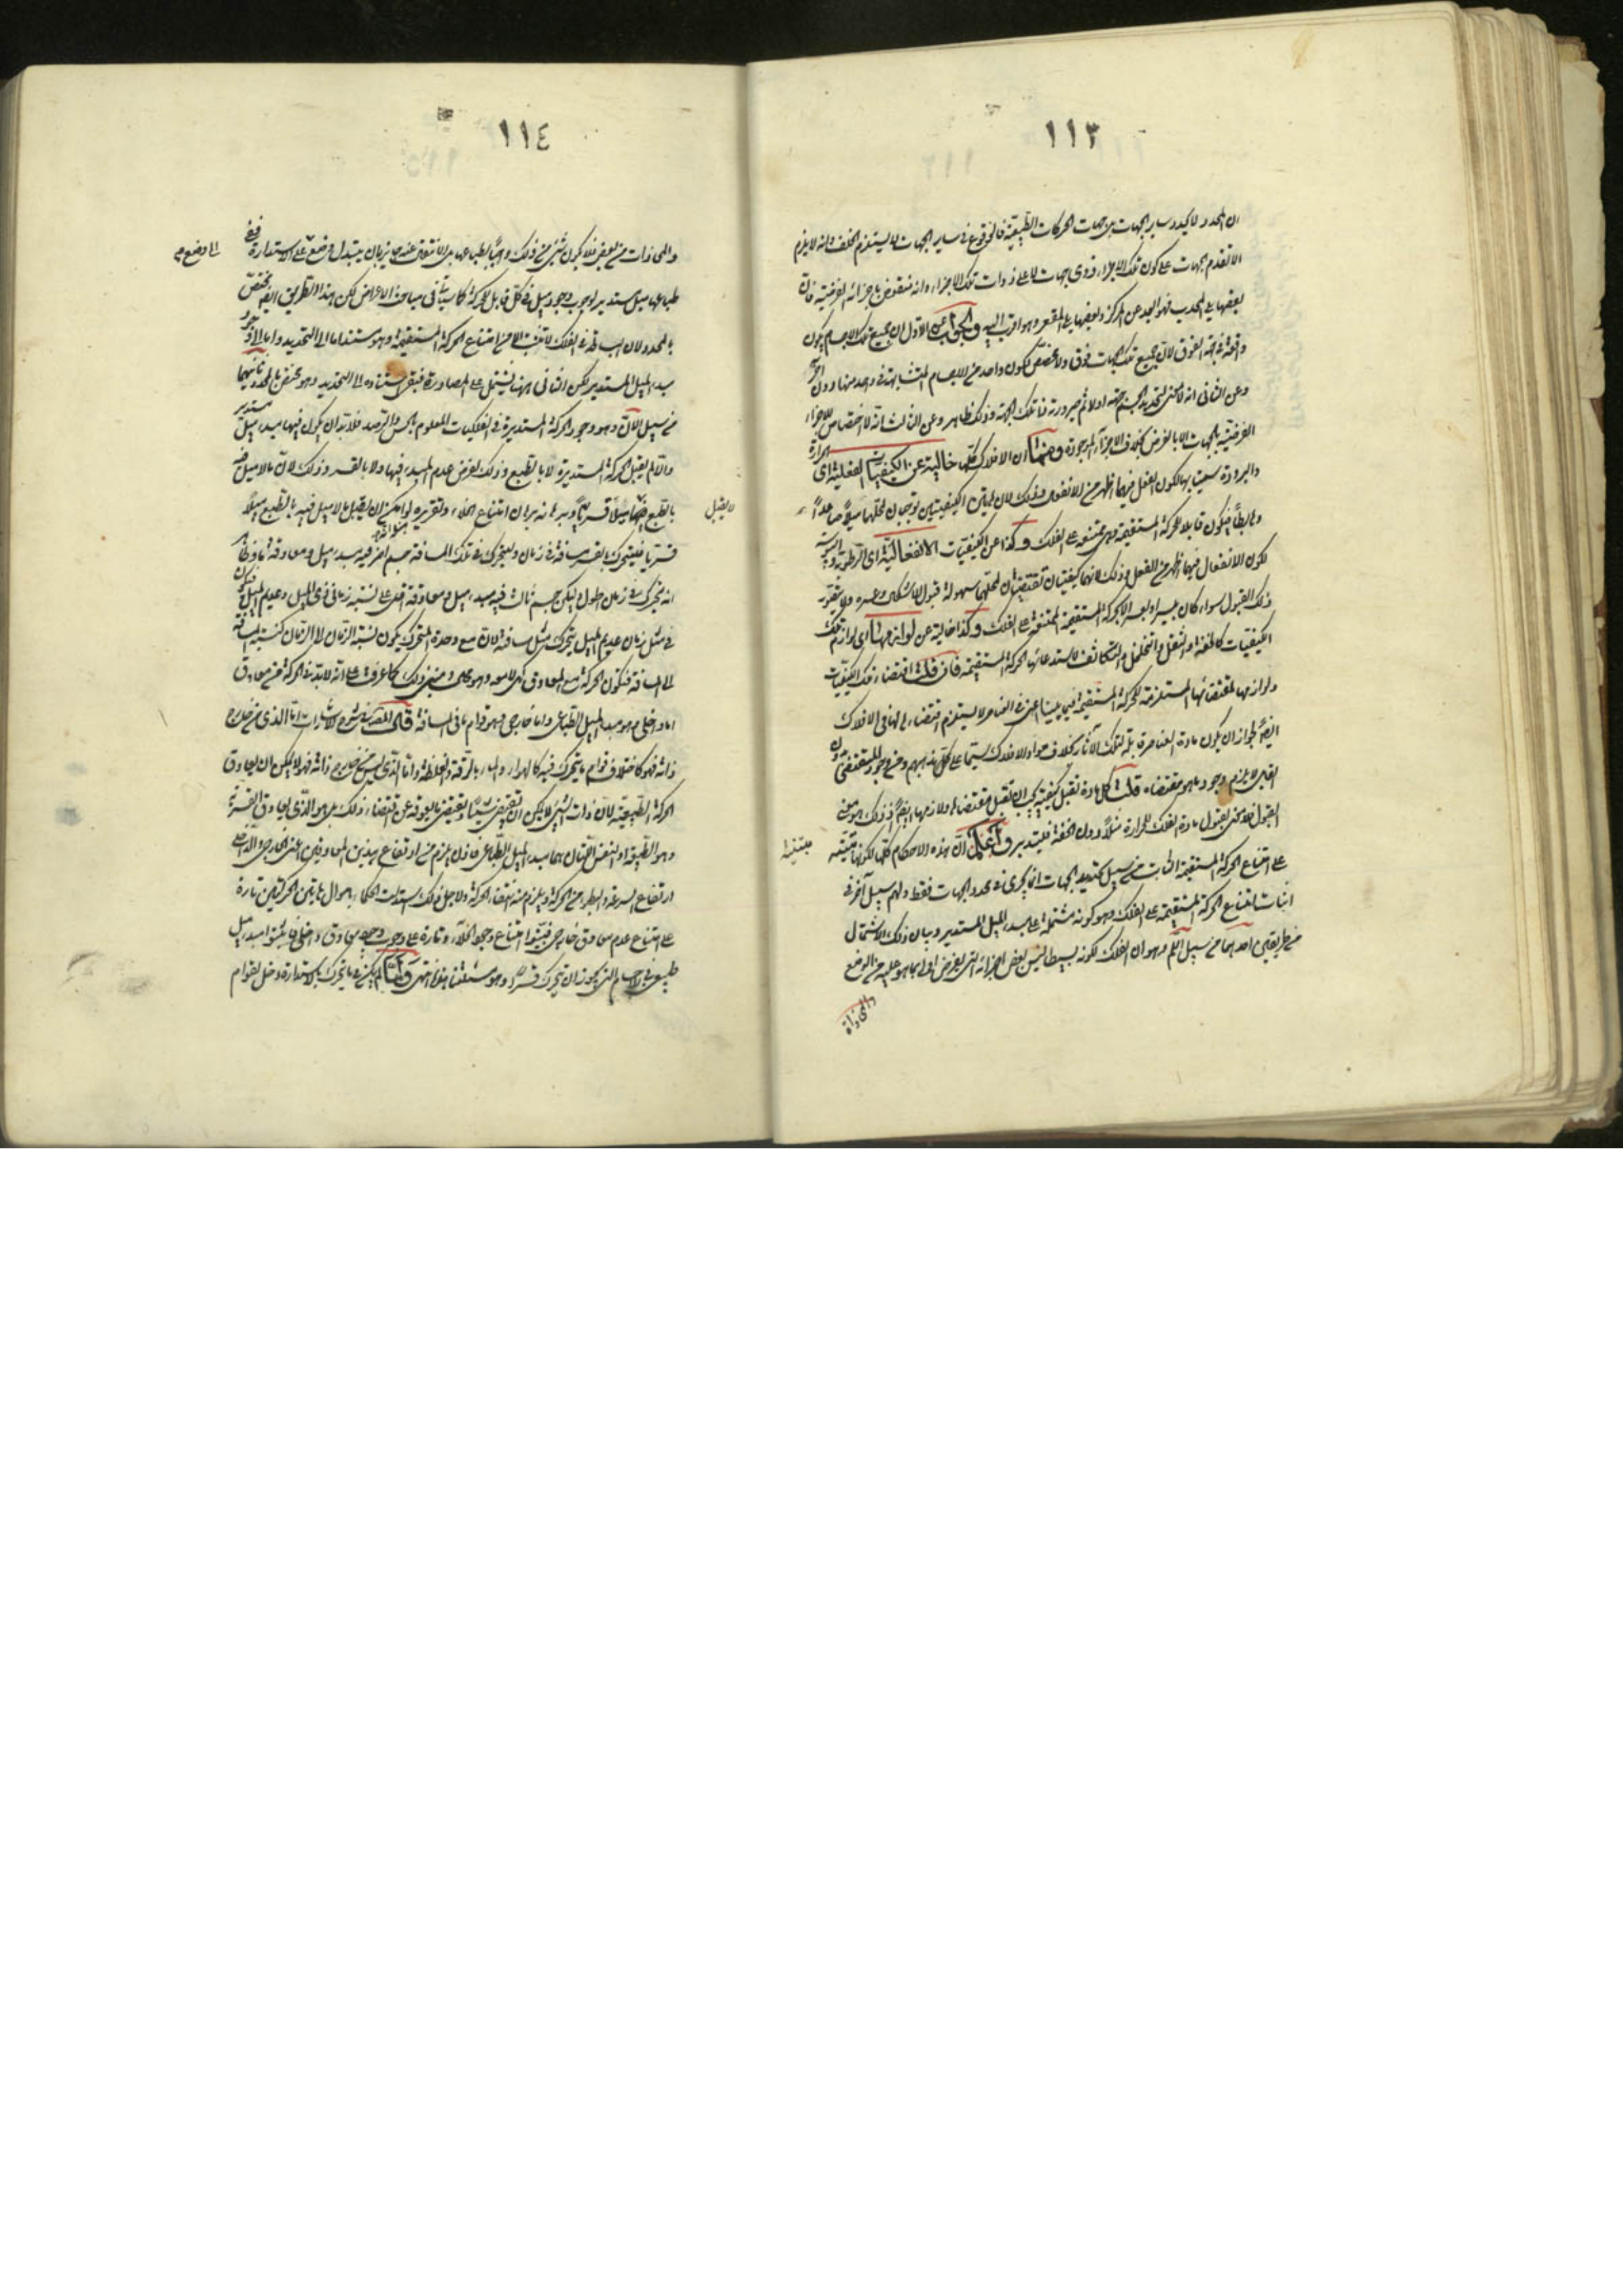 ١١٣
ان المحدد لا يحدد ساير الجهات بل جهات الحركات الطبيعية فالوقوع في ساير الجهات لا يستلزم الخلف وانه لا يلزم
الا تقدم الجهات على كون تلك الاجزاء ذوى جهات لا على ذوات تلك الاجزاء وانه منقوض باجزائه الفرضية فان
بعضها يلى المحدب فهو ابعد عن المركز وبعضها يلى المقعر وهو اقرب اليه والجواب عن الاول ان جميع تلك الاجسام يكون
واقعة في جهة الفوق لان جميع تلك الجهات فوق ولا مخصص لكون واحد من الاجسام المتشابهة في واحد منها دون آخر
وعن الثانى انه لا معنى لتحديد الجسم جهته اولا ثم صيرورته في تلك الجهة وذلك ظاهر وعن الثالث انه لا اختصاص للاجزاء
الفرضية بالجهات الا بالفرض بخلاف الاجزاء الموجودة ومنها ان الافلاك كلها خالية عن الكيفيات الفعلية اى الحرارة
والبرودة سميتا بها لكون الفعل فيهما اظهر من الانفعال وذلك لان هاتين الكيفيتين توجبان لمحلهما ميلا صاعدا
وهابطا فيكون قابلا للحركة المستقيمة وهى ممتنعة على الفلك وكذا عن الكيفيات الانفعالية اى الرطوبة واليبوسة
لكون الانفعال فيهما اظهر من الفعل وذلك لانهما كيفيتان تقتضيان لمحلهما سهولة قبول الاشكال وعسره ولا يتصور
ذلك القبول سواء كان بيسر او بعسر الا بالحركة المستقيمة الممتنعة على الفلك وكذا خالية عن لوازمها اى لوازم تلك
الكيفيات كالخفة والثقل والتخلخل والتكاثف لاستدعائها الحركة المستقيمة فان قلت اقتضاء تلك الكيفيات
ولوازمها لمقتضاتها المستلزمة للحركة المستقيمة فيما بيننا اعنى في العناصر لا يستلزم اقتضاء لها في الافلاك
ايضا لجواز ان يكون مادة العناصر قابلة لتلك الآثار بخلاف مواد الافلاك سيما على مذهبهم ومن وجود المقتضى بدون
القابل لا يلزم وجود ما هو مقتضاه قلت كل مادة تقبل كيفية يجب ان تقبل مقتضاها ولازمها ايضا اذ ذلك هو معنى
القبول فلا معنى لقبول مادة الفلك للحرارة مثلا دون الخفة فليتدبر واعلم ان هذه الاحكام كلها لكونها مبتنية
مبتنية
على امتناع الحركة المستقيمة الثابت من سبيل تحديد الجهات انما يجرى في محدد الجهات فقط ولهم سبيل آخر في
اثبات امتناع الحركة المستقيمة على الفلك وهو كونه مشتملة على مبدء الميل المستدير وبيان ذلك الاشتمال
من طريقين احدهما من سبيل اللم وهو ان الفلك لكونه بسيطا ليس بعض اجزائه التى يفرض اولى بما هو عليه من الوضع
والمحاذاة
١١٤
والمحاذات من بعض فلا يكون شئ من ذلك واجبا لطباعها بل الانتقال عنه جايز بان يتبدل وضع على الاستدارة ففى
الى وضع
طباعها ميل مستدير لوجوب وجود ميل في كل قابل للحركة كما سيأتى في مباحث الاعراض لكن هذا الطريق ايضا مختص
بالمحدد لان البساطة في الفلك لا تثبت الا من امتناع الحركة المستقيمة وهو مستند اما الى التحديد واما الى وجود
مبدء الميل المستدير لكن الثانى ههنا يشتمل على المصادرة فبقى استناده الى التحديد وهو مختص بالمحدد وثانيهما
من سبيل الان وهو وجود الحركة المستديرة في الفلكيات المعلوم بالحس والرصد فلا بد ان يكون فيها مبدء ميل مستدير
والا لم يقبل الحركة المستديرة لا بالطبع وذلك لفرض عدم المبدء فيها ولا بالقسر وذلك لان ما لا ميل فيه
بالطبع ميلا قسريا وبرهانه برهان امتناع الخلاء وتقريره لو امكن ان يقبل ما لا ميل فيه بالطبع ميلا
لا يقبل
قسريا فليتحرك بالقسر مسافة في زمان وليتحرك في تلك المسافة جسم آخر فيه مبدء ميل ومعاوقة ما وظاهر
انه يتحرك في زمان اطول وليكن جسم ثالث فيه مبدء ميل ومعاوقة اقل على نسبة زمانى ذى الميل وعديم الميل فيكون
في مثل زمان عديم الميل يتحرك مثل مسافة لان مع وحدة المتحرك يكون نسبة الزمان الى الزمان كنسبة المسافة
الى المسافة فتكون الحركة مع المعاوق كهى لا معه وهو محال ومبنى ذلك كما عرفت على انه لا بد في الحركة من معاوق
اما داخلى هو مبدء الميل الطباعى واما خارجى هو قوام ما في المسافة قال المصنف في شرح الاشارات اما الذى من خارج
ذاته فهو كاختلاف قوام ما يتحرك فيه كالهواء والماء بالرقة والغلظة واما الذى ليس من خارج ذاته فهو لا يمكن ان يعاوق
الحركة الطبيعية لان ذات الشئ لا يمكن ان تقتضى شيئا وتقتضى ما يعوقه عن اقتضاء ذلك بل هو الذى يعاوق القسرية
وهو الطبيعة او النفس اللتان هما مبدء الميل الطباعى فاذن يلزم من ارتفاع هذين المعاوقين اعنى الخارجى والداخلى
ارتفاع السرعة والبطوء من الحركة ويلزم منه انتفاء الحركة ولاجل ذلك استدلت الحكماء باحوال هاتين الحركتين تارة
على امتناع عدم معاوق خارجى فبينوا امتناع وجود الخلاء وتارة على وجوب وجود معاوق داخلى فاثبتوا مبدء ميل
طبيعى في الاجسام التى يجوز ان تتحرك قسرا وهو مسئلتنا هذه انتهى ولما لم يكن في ما يتحرك بالاستدارة دخل لقوام